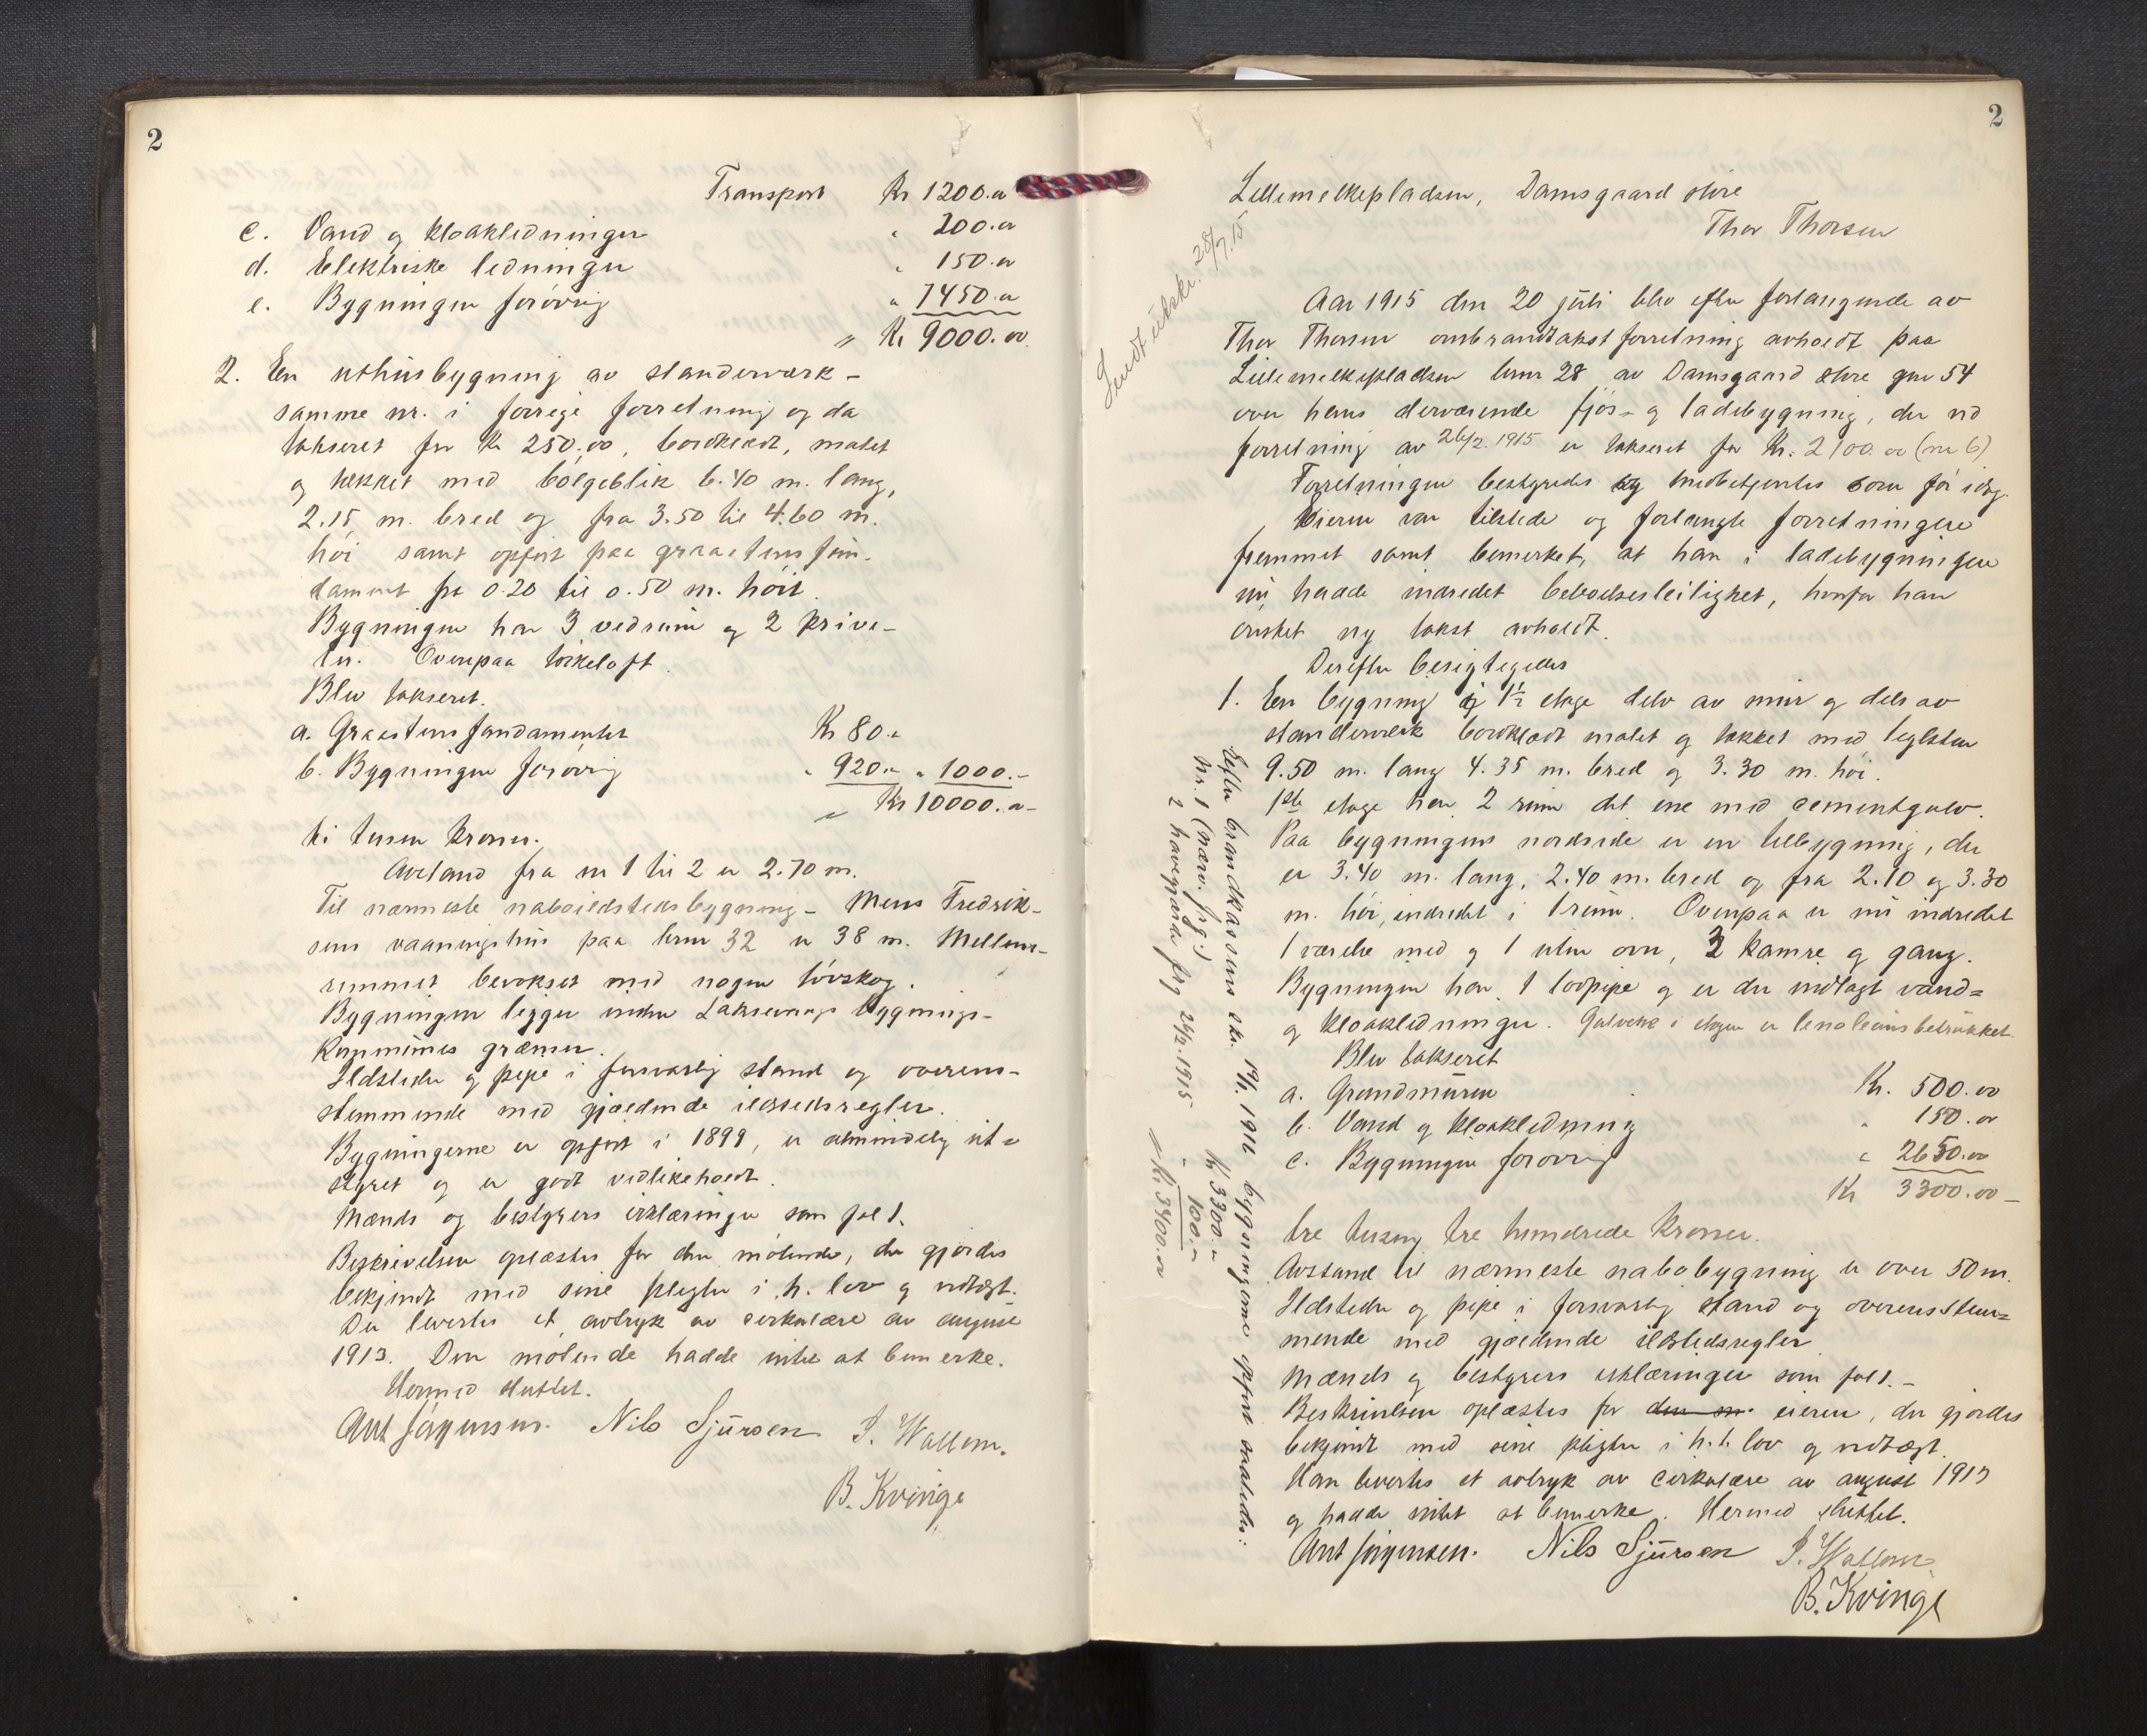 2
Transport Kr 1200.00
c. Vand og kloakledninger " 200.00
d. Elektriske ledninger " 150.00
e. Bygningen forøvrig " 7450.00
" Kr 9000.00
2. En uthusbygning av standerværk -
samme nr. i forrige forretning og da
takseret for Kr 250.00, bordklædt, malet
og tækket med bølgeblik 6.40 m. lang,
2.15 m. bred og fra 3.50 til 4.60 m.
høi samt opført paa graastensfun-
dament fra 0.20 til 0.50 m. høit.
Bygningen har 3 vedrum og 2 prive-
ter. Ovenpaa tørkeloft.
Blev takseret.
a. Graastensfundamentet Kr 80.00
b. Bygningen forøvrig " 920.00 " 1000.-
" Kr 10000.00-
ti tusen kroner.
Avstand fra nr 1 til 2 er 2.70 m.
Til nærmeste naboildstedsbygning - Mens Fredrik-
sens vaaningshus paa brnr 32 er 38 m. Mellem-
rummet bevokset med nogen løvskog.
Bygningen ligger inden Laksevaags bygnings-
kommunes grænser.
Ildsteder og pipe i forsvarlig stand og overens-
stemmende med gjældende ildstedsregler.
Bygningerne er opført i 1899, er almindelig ut-
styret og er godt vedlikeholdt.
Mænds og bestyrers erklæringer som fol 1.
Beskrivelsen oplæstes for den møtende, der gjordes
bekjendt med sine plegter i h. t. lov og vedtægt.
Der levertes et avtryk av cirkulære av august
1913. Den møtende hadde intet at bemerke.
Hermed sluttet.
Ant Jørgensen. Nils Sjursen J. Wallem.
B. Kvinge
2
Sendt utskr. 28/7.15
Lillemelkepladsen, Damsgaard store
Thor Thorsen
Aar 1915 den 20 juli blev efter forlangende av
Thor Thorsen ombrandtakstforretning avholdt paa
Lillemelkepladsen brnr 28 av Damsgaard store gnr 54
over hans derværende fjøs- og ladebygning, der ved
forretning av 26/2. 1915 er takseret for Kr. 2100.00 (nr 6)
Forretningen bestyredes og medbetjentes som før idag.
Eieren var tilstede og forlangte forretningen
fremmet samt bemerket, at han i ladebygningen
nu hadde indredet beboelsesleilighet, hvorfor han
ønsket ny takst avholdt.
Derefter besigtigedes
1. En bygning i 1½ etage dels av mur og dels av
standerværk bordklædt malet og tækket med teglsten
9.50 m. lang 4.35 m. bred og 3.30 m. høi.
1ste etage har 2 rum det ene med cementgulv.
Paa bygningens nordside er en tilbygning, der
er 3.40 m. lang, 2.40 m. bred og fra 2.10 og 3.30
m. høi, indredet i 1 rum. Ovenpaa er nu indredet
1 værelse med og 1 uten ovn, 2 kamre og gang.
Bygningen har 1 lodpipe og er der indlagt vand-
og kloakledninger. Gulvene i etagen er linoleumsbetrukket.
Blev takseret
a. Grundmuren Kr. 500.00
b. Vand og kloakledning " 150.00
c. Bygningen forøvrig " 2650.00
Kr 3300.00-
tre tusen tre hundrede kroner.
Avstand til nærmeste nabobygning er over 50 m.
Ildsteder og pipe i forsvarlig stand og overensstem-
mende med gjældende ildstedsregler
Mænds og bestyrers erklæringer som fol 1.-
Beskrivelsen oplæstes for den m eieren, der gjordes
bekjendt med sine plegter i h. t. lov og vedtægt.
Han levertes et avtryk av cirkulære av august 1913
og hadde intet at bemerke. Hermed sluttet.
Ant Jørgensen. Nils Sjursen J. Wallem
B. Kvinge
Efter brandkassens skr. 19/1. 1916 bygningerne opført saaledes:
Nr. 1 (nærv. frg.) Kr 3300.00
2 frg 26/2. 1915 " 100.00
" Kr 3400.00